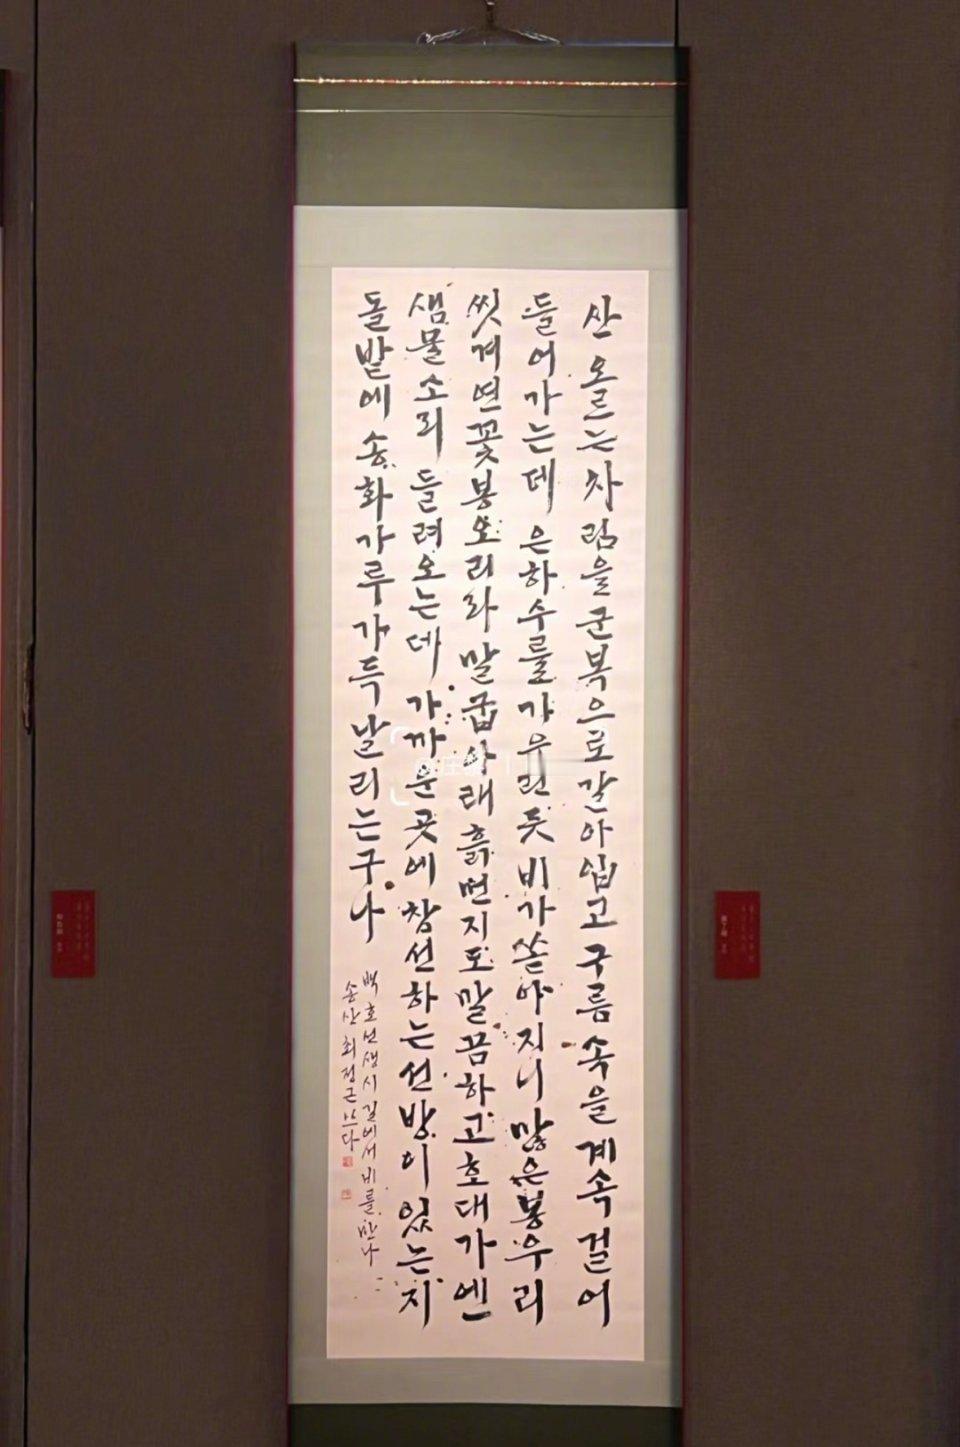 산 오르는 차림을 군복으로 갈아입고 구름 속을 계속 걸어
들어가는데 은하수를 가유린 듯 비가 쏟아지니 많은 봉우리
씻겨 연꽃봉오리라 말굽 아래 흙먼지도 말끔하고 호대가엔
샘물소리 들려오는데 가까운 곳에 참선하는 선방이 있는지
돌밭에 송화가루 가득 날리는구나
백호선생시 길에서 비를 만나
송산 최정근 쓰다